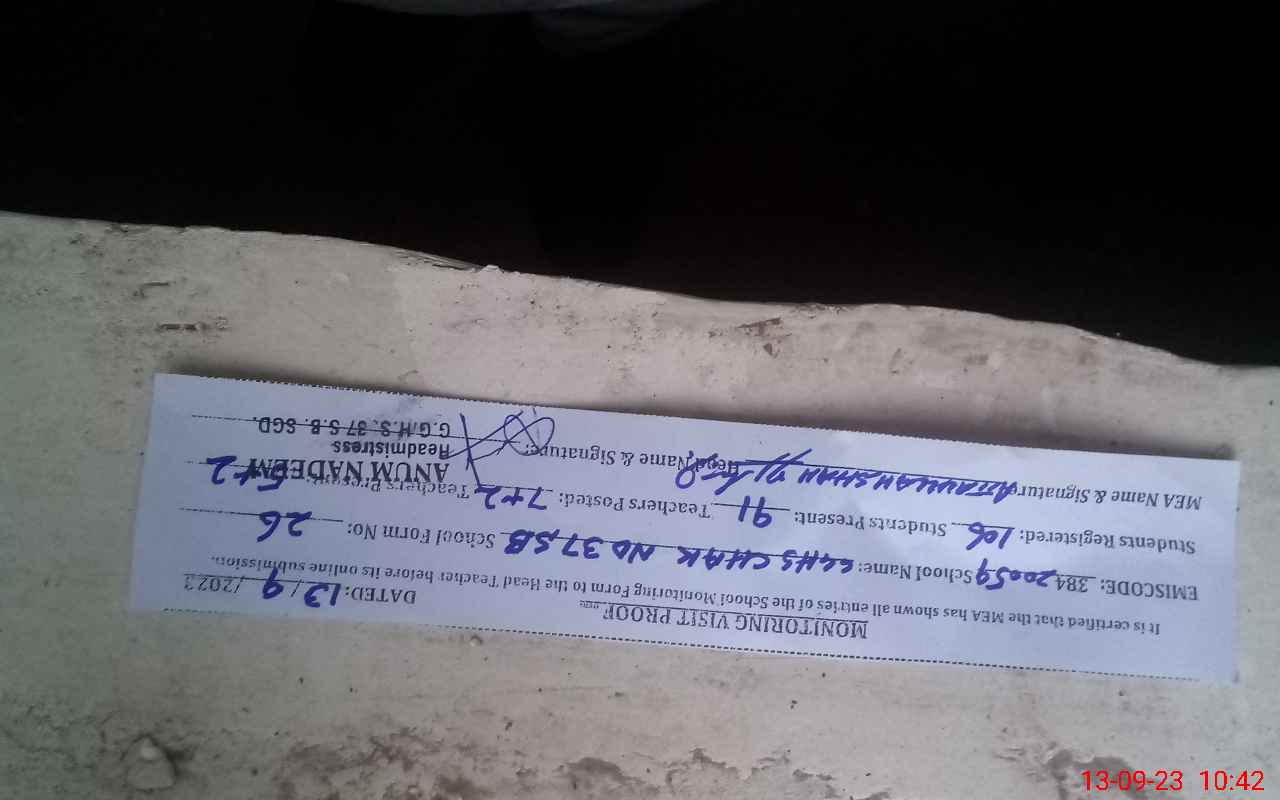 MONITORING VISIT PROOF
DATED: 13 / 9 /2023
It is certified that the MEA has shown all entries of the School Monitoring Form to the Head Teacher before its online submission.
EMISCODE: 384 20059 School Name: GGHS CHAK NO 37, SB School Form No: 26
Students Registered: 106 Students Present: 91 Teachers Posted: 7+2 Teachers Present: 5+2
MEA Name & Signature ATTAULLAH SHAH Head Name & Signature:
ANUM NADEEM
Headmistress
G.G.H.S. 37 S.B. SGD.
13-09-23 10:42